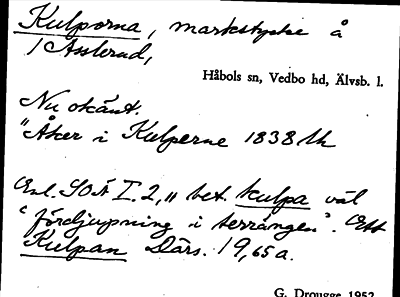 Kulporna, markstycke å
1 Asslerud,
Håbols sn, Vedbo hd, Älvsb. l.
Nu okänt.
"Åker i Kulperne 1838 lh
Enl. SOÄ I. 2, 11 bet. kulpa väl
"fördjupning i terrängen". Ett
Kulpan Därs. 19,65 a.
G. Drougge 1952